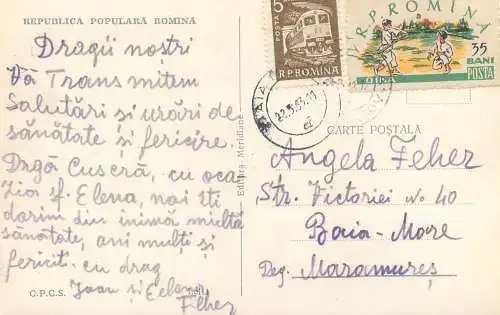 REPUBLICA POPULARĂ ROMINĂ
Dragii noștri
Vă Transmitem
Salutări și urări de
sănătate și fericire.
Dragă Cuscră, cu oca
Ziei sf. Elena, noi îți
dorim din inimă multă
sănătate, ani mulți și
fericiți. cu drag
Ioan și Elena
Feher
C.P.C.S.
Editura Meridiane
POSTA
R.P.ROMINA
R.P.ROMINA
35
BANI
POSTA
OINA
22.5.63
CARTE POȘTALĂ
Angela Feher
Str. Victoriei No 40
Baia-Mare
Reg. Maramureș